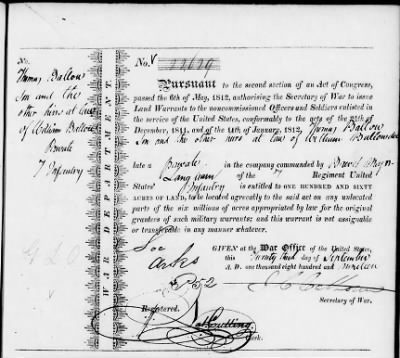 No.
Thomas Ballow
Son and the
other heirs at law
of William Ballow
Private
7 Infantry
WAR DEPARTMENT.
No.
PURSUANT to the second section of an Act of Congress,
passed the 6th of May, 1812, authorising the Secretary of War to issue
Land Warrants to the noncommissioned Officers and Soldiers enlisted
in the service of the United States, conformably to the acts of the
December, 1811, and of the 11th of January, 1812, Thomas Ballow
Son and the other heirs at law of William Ballow
late a Private in the company commanded by Brevet
Langham of the 7 Regiment United
States' Infantry is entitled to ONE HUNDRED AND SIXTY
ACRES OF LAND, to be located agreeably to the said act on any unlocated
parts of the six millions of acres appropriated by law for the original
grantees of such military warrants; and this warrant is not assignable
or transferable in any manner whatever.
GIVEN at the War Office of the United States,
this Twenty third day of September
A. D. one thousand eight hundred and nineteen
Secretary of War.
Registered.
Clerk.